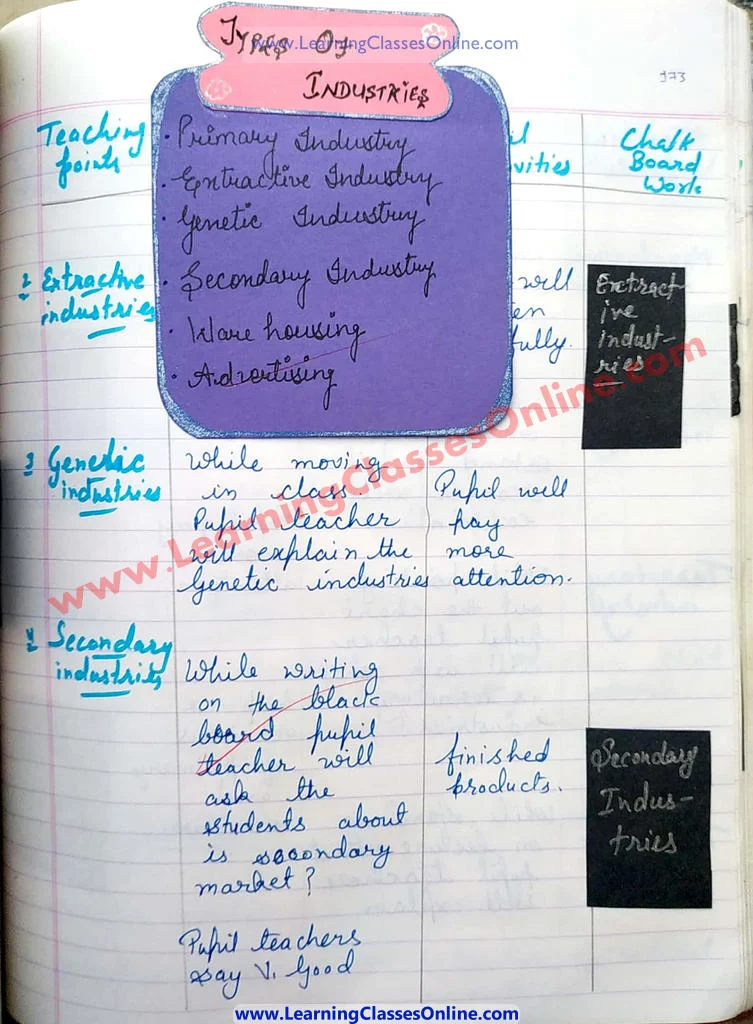 www.LearningClassesOnline.com
Types Of
Industries
173
Teaching
points
vities
Chalk
Board
Work
· Primary Industry
· Extractive Industry
· Genetic Industry
· Secondary Industry
· Ware housing
· Advertising
2 Extractive
industries
will
fully.
Extract-
ive
indust-
ries
www.LearningClassesOnline.com
3 Genetic
industries
While moving
in class.
Pupil teacher
will explain the
Genetic industries
Pupil will
pay
more
attention.
4 Secondary
industries
While writing
on the black
board pupil
teacher will
ask the
students about
is secondary
market?
finished
products.
Secondary
Indus-
tries
Pupil teachers
say V. Good
www.LearningClassesOnline.com